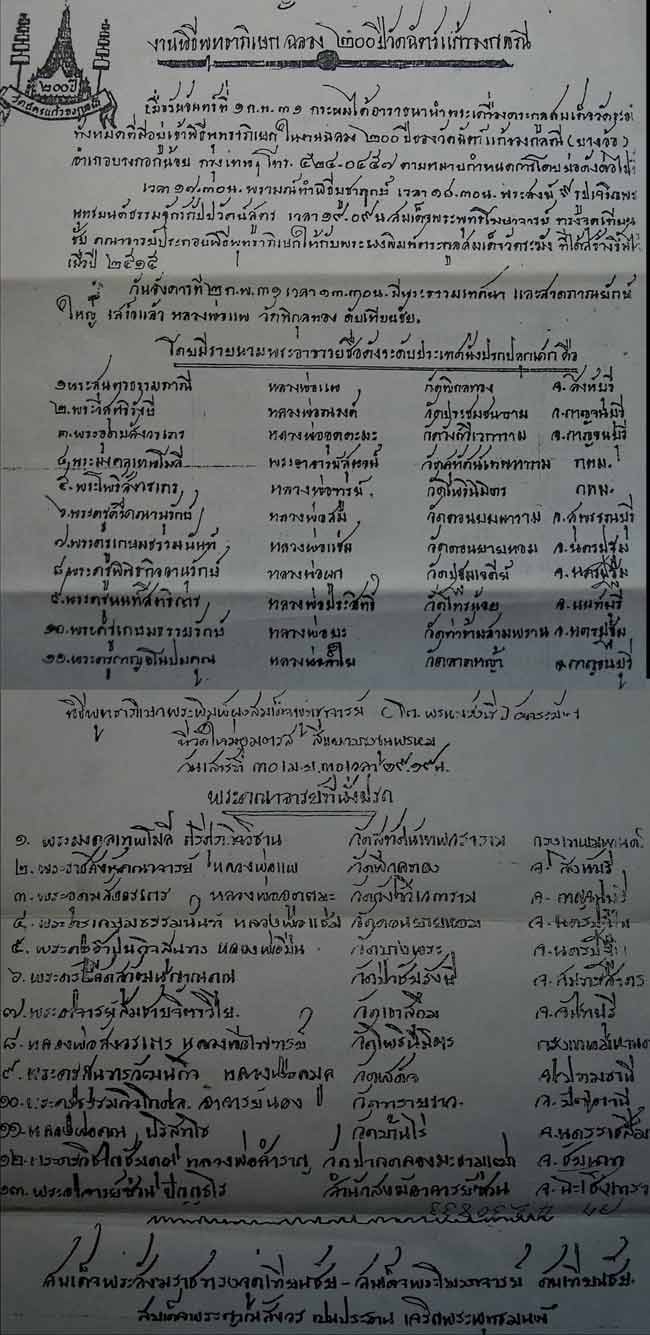 งานพิธีพุทธาภิเษก ฉลอง ๒๐๐ ปี วัดฉัตรแก้วจงกลณี
๒๐๐ปี
วัดฉัตรแก้วจงกลณี
เมื่อวันจันทร์ที่ ๑ ก.พ. ๓๑ กระผมได้อาราธนานำพระเครื่องตระกูลสมเด็จวัดระฆัง
ทั้งหมดที่มีอยู่เข้าพิธีพุทธาภิเษก ในงานฉลอง ๒๐๐ ปีของวัดฉัตรแก้วจงกลณี (บางอ้อ)
อำเภอบางกอกน้อย กรุงเทพฯ โทร. ๔๒๔-๐๔๕๗ ตามหมายกำหนดการโดยย่อดังต่อไปนี้
เวลา ๑๗.๓๐น. พราหมณ์ทำพิธีบูชาฤกษ์ เวลา ๑๘.๓๐น. พระสงฆ์ รูปเจริญพระ
พุทธมนต์ธรรมจักรกัปปวัตนสูตร เวลา ๑๙.๐๙น สมเด็จพระพุทธโฆษาจารย์ ทรงจุดเทียน
ชัย คณาจารย์ประกอบพิธีพุทธาภิเษกให้กับพระผงพิมพ์ตระกูลสมเด็จวัดระฆัง ที่ได้สร้างขึ้นไว้
เมื่อปี ๒๕๑๕
วันอังคารที่ ๒ ก.พ. ๓๑ เวลา ๑๓.๓๐น. มีพระธรรมเทศนา และสวดภาณยักษ์
ใหญ่ เสร็จแล้ว หลวงพ่อแพ วัดพิกุลทอง ดับเทียนชัย.
โดยมีรายนามพระอาจารย์ชื่อดังระดับประเทศนั่งปรกปลุกเสก คือ
๑พระสุนทรธรรมภาณี หลวงพ่อแพ วัดพิกุลทอง จ.สิงห์บุรี
๒.พระวิสุทธิรังษี หลวงพ่อณรงค์ จ.กาญจน์บุรี
๓.พระอุดมสังวรเถร หลวงพ่ออุตตะมะ วัดวังก์วิเวการาม จ.กาญจนบุรี
๔.พระมงคลเทพโมลี พระอาจารย์สุพจน์ วัดสุทัศน์เทพวราราม กทม.
๕.พระโพธิสังวรเถร, หลวงพ่อฑูรย์, วัดโพธินิมิตร กทม.
๖.พระครู หลวงพ่อสมี วัดดอน จ.สุพรรณบุรี
๗.พระครูเกษมธรรมนันท์, หลวงพ่อแช่ม วัดดอนยายหอม จ.นครปฐม
๘.พระครูพิพิธกิจจานุรักษ์ หลวงพ่อผก วัดปฐมเจดีย์ จ.นครปฐม
๙.พระครูนนทสิทธิการ, หลวงพ่อประสิทธิ์ วัดไทรน้อย จ.นนท์บุรี
๑๐.พระครูเกษมธรรมรักษ์ หลวงพ่อมะ วัดท่าข้ามสามพราน จ.นครปฐม
๑๑.พระครูกาญจโนปมคุณ หลวงพ่อลำใย วัดลาดหญ้า จ.กาญจน์บุรี
พิธีพุทธาภิเษกพระพิมพ์ผงสมเด็จพระพุฒาจารย์ (โต. พรหมรังสี) วัดระฆังฯ
ที่วัดใหม่อมตรส บางขุนพรหม
วันเสาร์ที่ ๓๐ เม.ย. ๓๑ เวลา ๑๙.๑๙น.
พระคณาจารย์ที่นั่งปรก
๑. พระมงคลเทพโมลี วัดสุทัศน์เทพวราราม กรุงเทพมหานคร
๒. พระราชสิงหคณาจารย์ หลวงพ่อแพ วัดพิกุลทอง จ. สิงห์บุรี
๓. พระอุดมสังวรเถร หลวงพ่ออุตตมะ วัดวังก์วิเวการาม จ. กาญจน์บุรี
๔. พระครูเกษมธรรมนันท์ หลวงพ่อแช่ม วัดดอนยายหอม จ.นครปฐม
๕. พระครูฐาปนกิจสุนทร หลวงพ่อเปิ่น วัดบางพระ จ.นครปฐม
๖. วัดป่าชัยรังสี จ.สมุทรสาคร
๗. พระอาจารย์สมชายฐิตวิริโย. วัดเขาสุกิม จ.จันทบุรี
๘. หลวงพ่อสังวรเถร หลวงพ่อไพฑูรย์ วัดโพธินิมิตร กรุงเทพมหานคร
๙. พระครูสุนทรวัฒนกิจ หลวงพ่อ วัดเสด็จ จ.ปทุมธานี
๑๐. พระครูธรรมกิจโกศล. อาจารย์นอง วัดทรายขาว. จ. ปัตตานี
๑๑. หลวงพ่อคูณ ปริสุทโธ วัดบ้านไร่ จ.นครราชสีมา
๑๒. หลวงพ่อสำราญ วัดปากคลองมะขามเฒ่า จ. ชัยนาท
๑๓. พระอาจารย์ช้วน ปิกกุธโร สำนักสงฆ์อาจารย์ช้วน จ.ฉะเชิงเทรา
สมเด็จพระสังฆราชทรงจุดเทียนชัย - สมเด็จพระ ดับเทียนชัย.
สมเด็จพระญาณสังวร เป็นประธาน เจริญพระพุทธมนต์